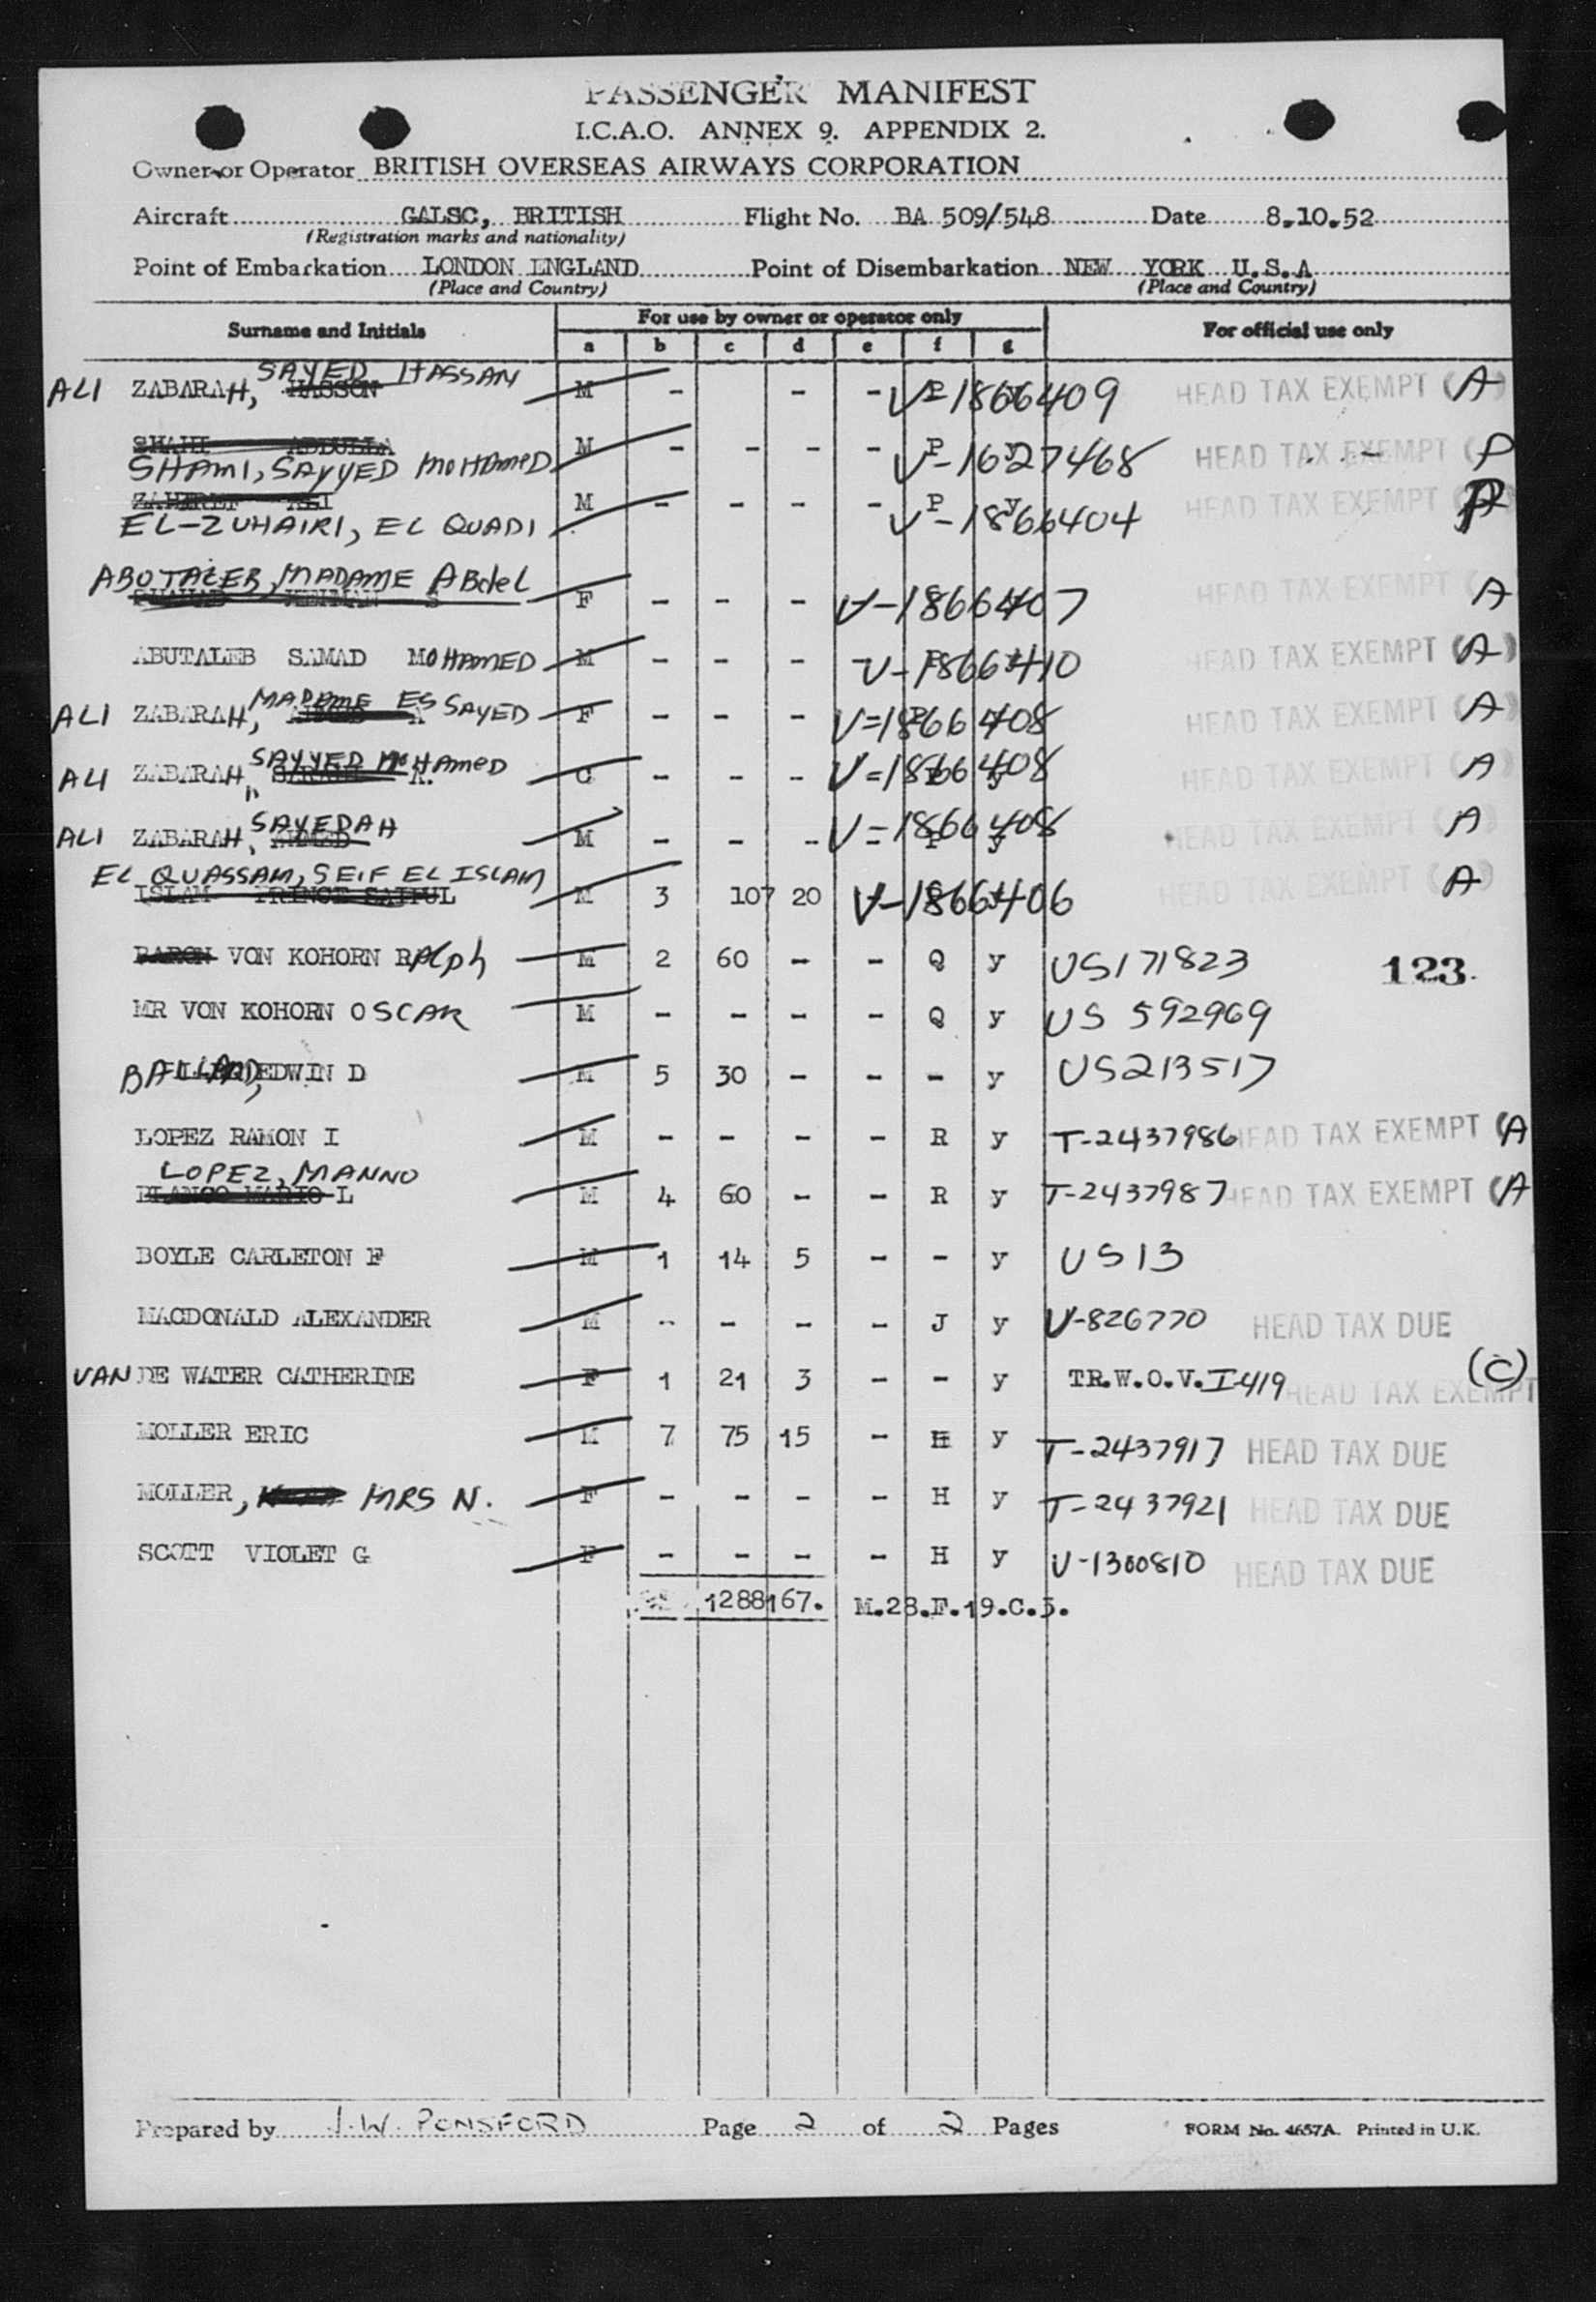 PASSENGER MANIFEST
I.C.A.O. ANNEX 9. APPENDIX 2.
Owner or Operator BRITISH OVERSEAS AIRWAYS CORPORATION
Aircraft GALSC, BRITISH Flight No. BA 509/548 Date 8.10.52
(Registration marks and nationality)
Point of Embarkation LONDON ENGLAND Point of Disembarkation NEW YORK U.S.A
(Place and Country) (Place and Country)
Surname and Initials For use by owner or operator only For official use only
a b c d e f g
SAYED HASSAN
ALI ZABARAH, HASSON M - - - V-1866409 HEAD TAX EXEMPT (A)
SHAMI ABDULLA M - - - - P V-1627468 HEAD TAX EXEMPT (P
SHAMI, SAYYED MOHAMED
ALI M - - - - P y V-1866404 HEAD TAX EXEMPT
EL-ZUHAIRI, EL QUADI
ABOTALEB, MADAME Abdel
F - - - V-1866407 HEAD TAX EXEMPT (A
ABUTALEB SAMAD MOHAMED M - - - V-1866410 HEAD TAX EXEMPT (A)
MADAME ES SAYED
ALI ZABARAH, F - - - V=1866408 HEAD TAX EXEMPT (A)
SAYYED MOHAMED
ALI ZABARAH, A. C - - - V=1866408 HEAD TAX EXEMPT (A)
SAYEDAH
ALI ZABARAH, AHMED M - - - V=1866408 HEAD TAX EXEMPT (A)
EL QUASSAM, SEIF EL ISLAM
ISLAM PRINCE SAIFUL M 3 107 20 V-1866406 HEAD TAX EXEMPT (A)
BARON VON KOHORN RAlph M 2 60 - - Q y US171823 123.
MR VON KOHORN OSCAR M - - - - Q y US 592969
BALLARD, EDWIN D M 5 30 - - - y US213517
LOPEZ RAMON I M - - - - R y T-2437986 HEAD TAX EXEMPT (A
LOPEZ, MANNO
BLANCO MARIO L M 4 60 - - R y T-2437987 HEAD TAX EXEMPT (A
BOYLE CARLETON F M 1 14 5 - - y US13
MACDONALD ALEXANDER M - - - - J y V-826770 HEAD TAX DUE
VAN DE WATER CATHERINE F 1 21 3 - - y TR.W.O.V. I-419 HEAD TAX EXEMPT (C)
MOLLER ERIC M 7 75 15 - H y T-2437917 HEAD TAX DUE
MOLLER, MRS N. F - - - - H y T-2437921 HEAD TAX DUE
SCOTT VIOLET G F - - - - H y V-1300810 HEAD TAX DUE
1288 167. M.28.F.19.C.3.
Prepared by J.W. PONSFORD Page 2 of 2 Pages FORM No. 4657A. Printed in U.K.